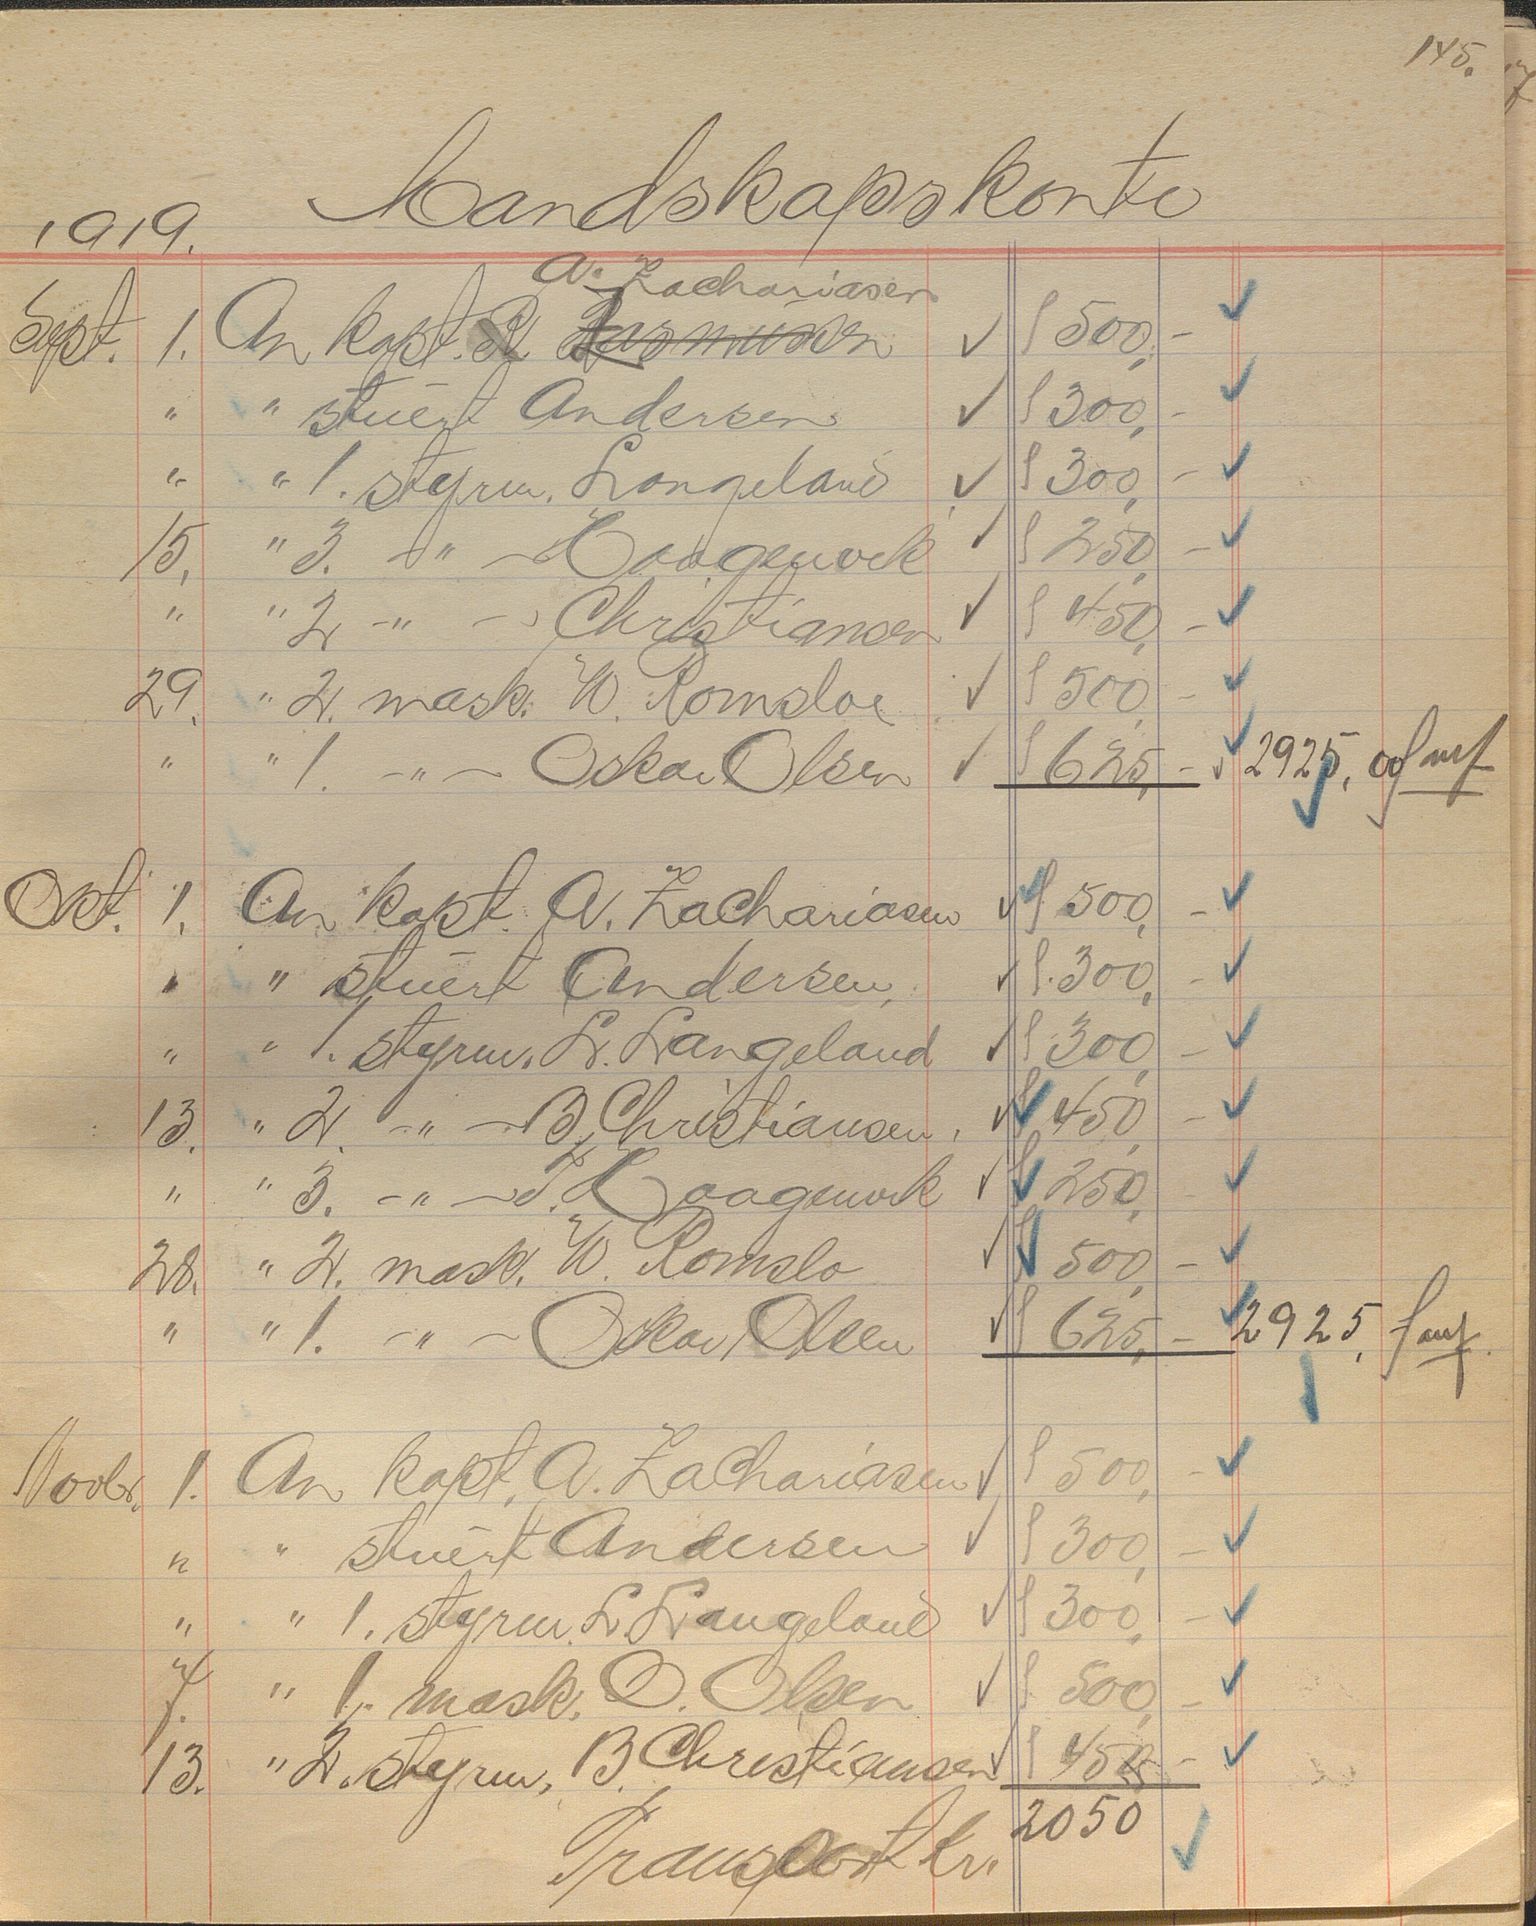 145.
Mandskapskonto
1919.
A. Zachariasen
Sept. 1. An kapt. R. Rasmussen ✓ 500,- ✓
" " stuert Andersen ✓ 300,- ✓
" " 1. styrm. Langeland ✓ 300,- ✓
15. " 3. -"- Haagenvik ✓ 250,- ✓
" " 2. -"- Christiansen ✓ 450,- ✓
29. " 2. mask. W. Romsloe ✓ 500,- ✓
" " 1. -"- Oskar Olsen ✓ 625,- ✓ 2925,00
Okt. 1. An kapt. A. Zachariasen ✓ 500,- ✓
" " stuert Andersen, ✓ 300,- ✓
" " 1. styrm. L. Langeland ✓ 300,- ✓
13. " 2. -"- B. Christiansen, ✓ 450,- ✓
" " 3. -"- T. Haagenvik ✓ 250,- ✓
28. " 2. mask. W. Romslo ✓ 500,- ✓
" " 1. -"- Oskar Olsen ✓ 625,- ✓ 2925,
Novbr. 1. An kapt. A. Zachariasen ✓ 500,- ✓
" " stuert Andersen ✓ 300,- ✓
" " 1. styrm. L. Langeland ✓ 300,- ✓
7. " 1. mask. O. Olsen ✓ 500,- ✓
13. " 2. styrm. B. Christiansen ✓ 450,- ✓
Transport kr. 2050 ✓